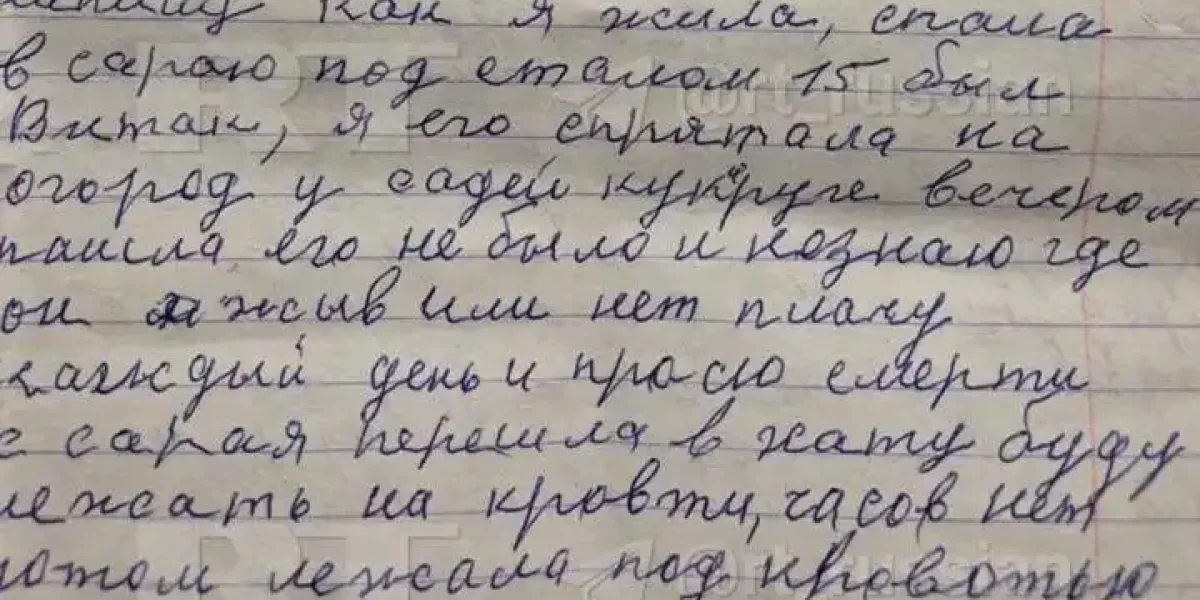 как я жила, спала
в сараю под сталом 15 был
Витак, я его спрятала на
огород у садей кукруге вечером
паисла его не было и незнаю где
он жыв или нет плачу
каждый день и прасю смерти
с сарая перешла в хату буду
лежать на кровти, часов нет
потом лежала под кровотью
RT
@rt_russian
RT